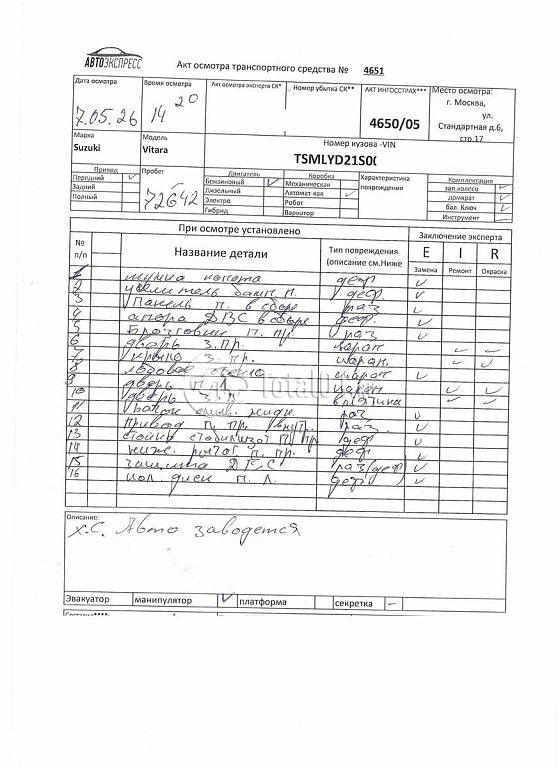 АВТОЭКСПРЕСС
Акт осмотра транспортного средства № 4651
Дата осмотра
7.05.26
Время осмотра
14 20
Акт осмотра эксперта СК*
Номер убытка СК**
АКТ ИНГОССТРАХ***
4650/05
Место осмотра:
г. Москва,
ул.
Стандартная д.6,
стр.17
Марка
Suzuki
Модель
Vitara
Номер кузова -VIN
TSMLYD21S0(
Привод
Передний ✓
Задний
Полный
Пробег
72642
Двигатель
Бензиновый ✓
Дизельный
Электро
Гибрид
Коробка
Механическая
Автомат-кая ✓
Робот
Вариатор
Характеристика
повреждения
Комплектация
зап.колесо ✓
домкрат ✓
бал. Ключ ✓
Инструмент
При осмотре установлено
Заключение эксперта
№ п/п
Название детали
Тип повреждения (описание см.Ниже
E I R
Замена Ремонт Окраска
1 капота деф ✓
2 усилитель п. деф. ✓
3 Панель п. в сборе раз ✓
4 опора ДВС в сборе деф. ✓
5 п. пр. раз ✓
6 дверь з.пр. царап ✓ ✓
7 крыло з. пр. царап. ✓ ✓
8 царап ✓
9 дверь п. л. царап ✓ ✓
10 дверь з. л. вмятина ✓ ✓
11 омыв. жидк. раз ✓
12 привод п. пр. внутр. раз. ✓
13 стойка стабилизат п. пр деф ✓
14 ниж. рычаг п. пр. деф ✓
15 защита ДВС раз/деф ✓
16 кол. диск п. л. деф ✓
Описание:
х.с. Авто заводется
Эвакуатор манипулятор ✓ платформа секретка –